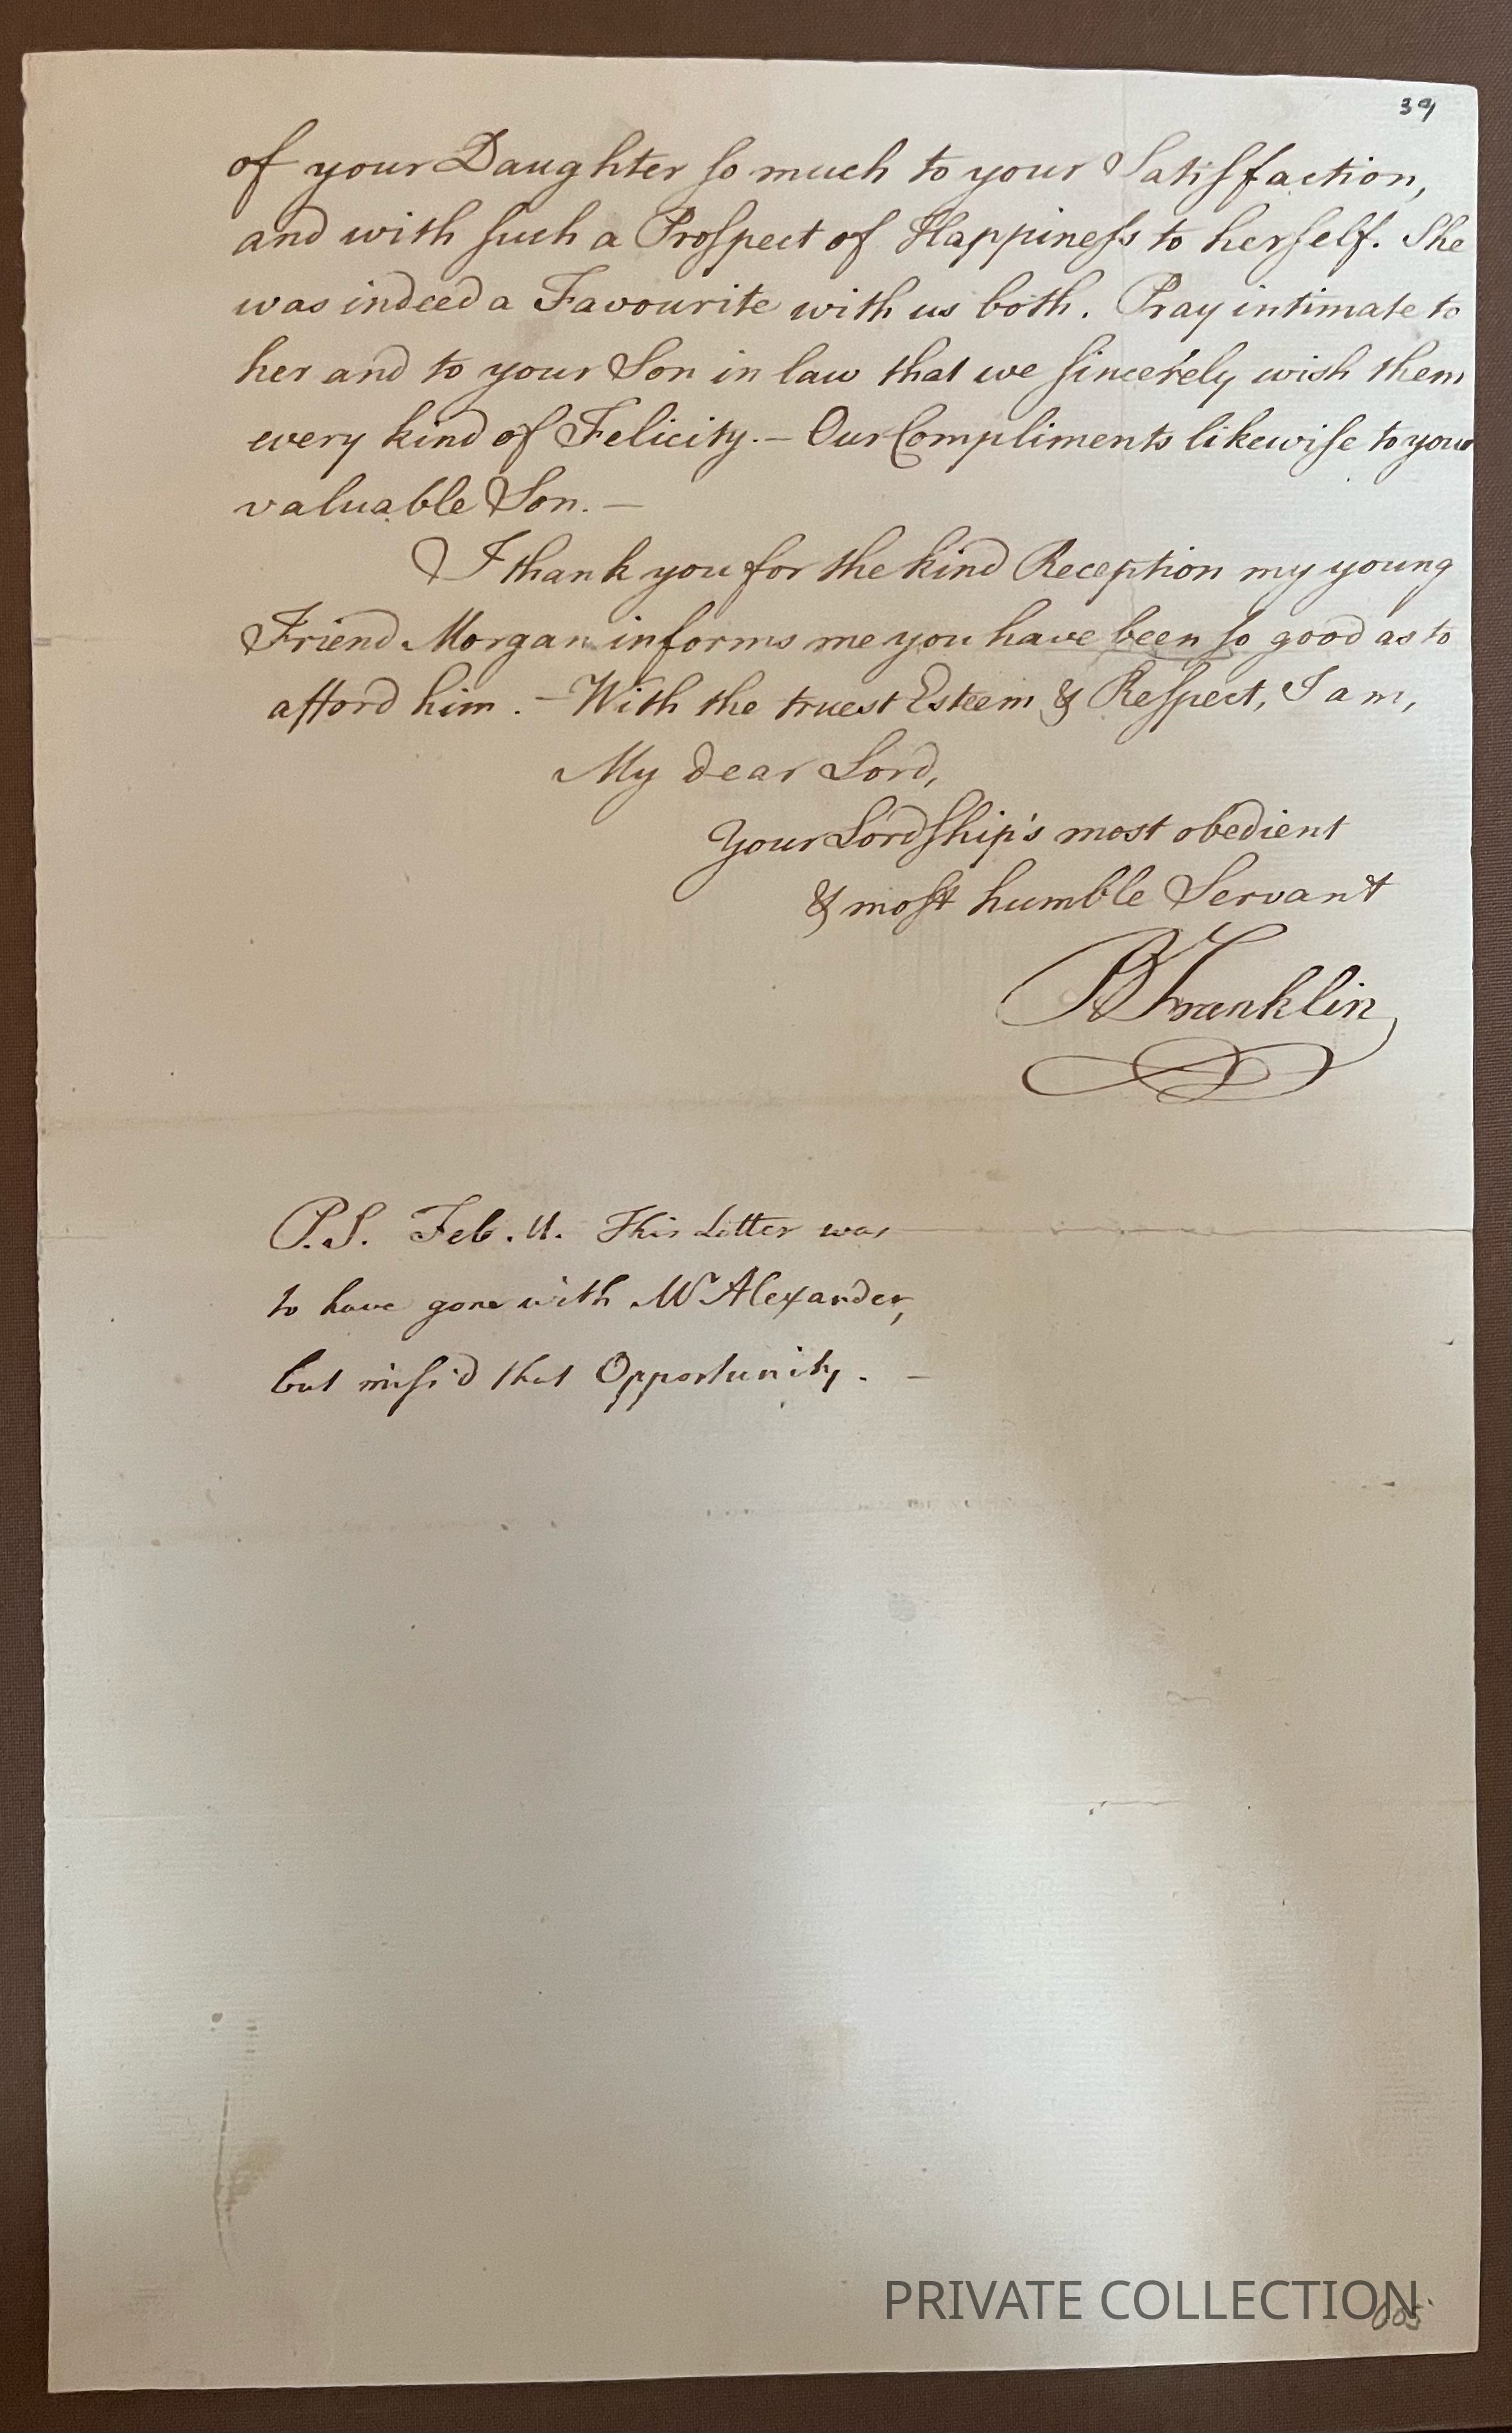 39
of your Daughter so much to your Satisfaction,
and with such a Prospect of Happiness to herself. She
was indeed a Favourite with us both. Pray intimate to
her and to your Son in law that we sincerely wish them
every kind of Felicity.— Our Compliments likewise to your
valuable Son.—
I thank you for the kind Reception my young
Friend Morgan informs me you have been so good as to
afford him. — With the truest Esteem & Respect, I am,
My dear Lord,
Your Lordship's most obedient
& most humble Servant
B Franklin
P.S. Feb. 11. This Letter was
to have gone with Mr Alexander,
but miss'd that Opportunity. —
PRIVATE COLLECTION